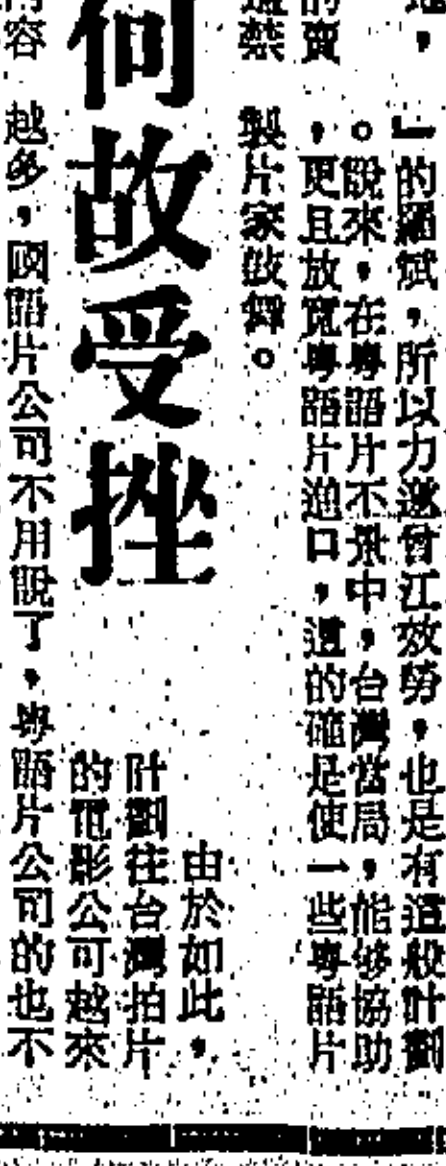 地，
」的羅斌，所以力邀曾江效勞，也是有這般計劃
。說來，在粵語片不景中，台灣當局，能够協助
的賣
，更且放寬粵語片進口，這的確是使一些粵語片
禁
製片家鼓舞。
何故受挫
由於如此，
計劃往台灣拍片
的電影公司越來
內容
越多，國語片公司不用說了，粵語片公司的也不